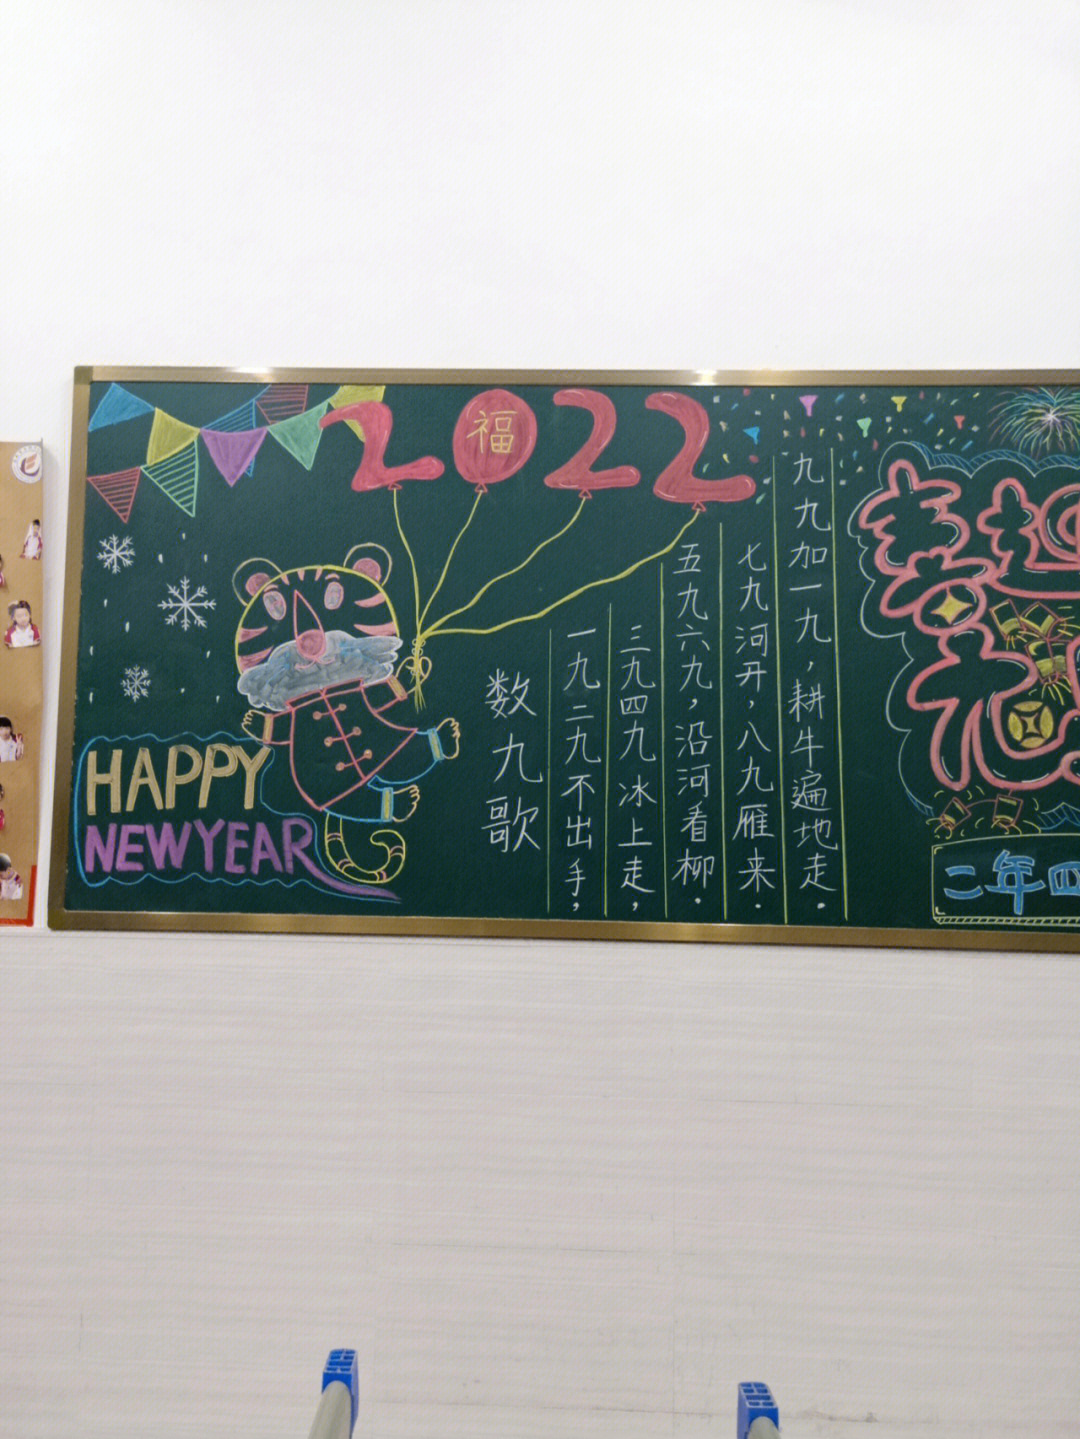 2022
福
HAPPY
NEW YEAR
数九歌
一九二九不出手，
三九四九冰上走，
五九六九，沿河看柳．
七九河开，八九雁来．
九九加一九，耕牛遍地走．
二年四